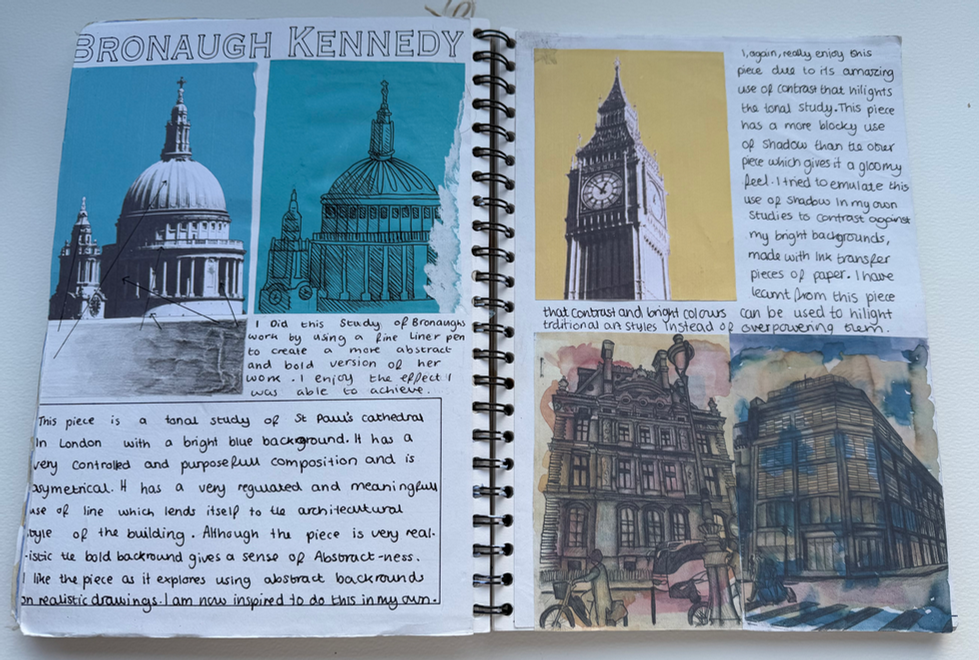 BRONAUGH KENNEDY
I Did this study of Bronaughs
work by using a fine liner pen
to create a more abstract
and bold version of her
work. I enjoy the effect I
was able to achieve.
This piece is a tonal study of St Paul's cathedral
In London with a bright blue background. It has a
very controlled and purposefull composition and is
asymetrical. It has a very regulated and meaningfull
use of line which lends itself to the architectural
style of the building. Although the piece is very real-
-istic the bold backround gives a sense of Abstract-ness.
I like the piece as it explores using abstract backrounds
on realistic drawings. I am now inspired to do this in my own.
I, again, really enjoy this
piece due to its amazing
use of contrast that hilights
the tonal study. This piece
has a more blocky use
of shadow than the other
piece which gives it a gloomy
feel. I tried to emulate this
use of shadow in my own
studies to contrast against
my bright backgrounds,
made with ink transfer
pieces of paper. I have
learnt from this piece
that contrast and bright colours can be used to hilight
traditional art styles instead of overpowering them.